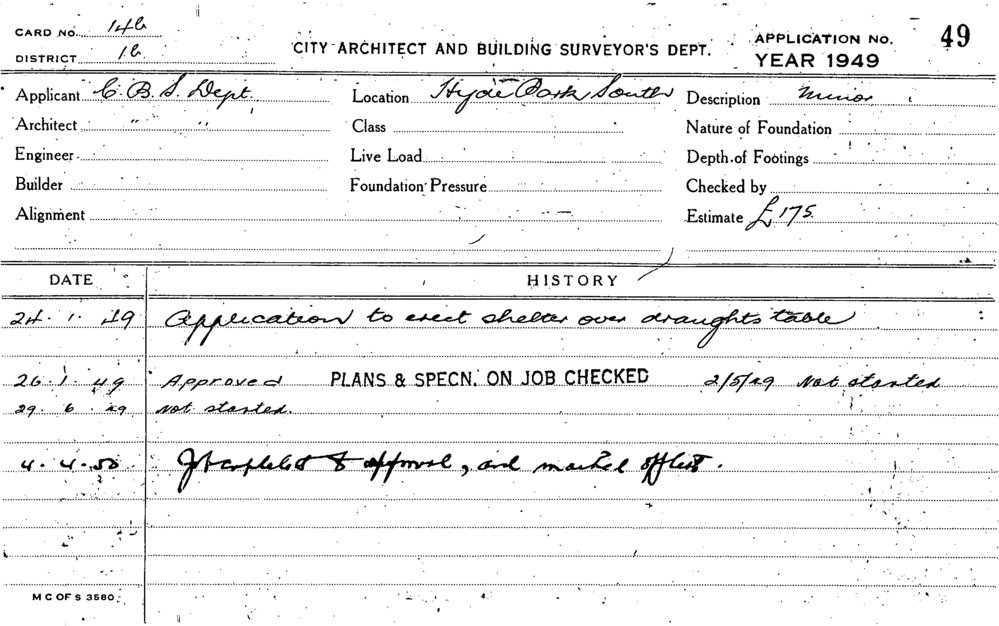 CARD NO. 146
DISTRICT 16
CITY ARCHITECT AND BUILDING SURVEYOR'S DEPT.
APPLICATION NO. 49
YEAR 1949
Applicant C. B. S. Dept. Location Hyde Park South Description Minor
Architect " " Class Nature of Foundation
Engineer Live Load Depth of Footings
Builder Foundation Pressure Checked by
Alignment Estimate £175
DATE HISTORY
24. 1. 49 Application to erect shelter over draughts table
26. 1. 49 Approved PLANS & SPECN. ON JOB CHECKED 2/5/49 Not started
29. 6. 49 Not started.
4. 4. 50 Job completed to approval, and marked off list.
M C OF S 3580